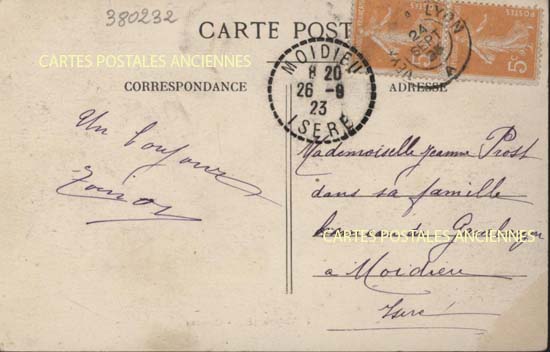 380232
CARTE POST
CARTES POSTALES ANCIENNES
CORRESPONDANCE
ADRESSE
LYON
5c
MOIDIEU
8 20
26 -9
23
ISERE
Un bonjour
Mademoiselle Jeanne Prost
dans sa famille
CARTES POSTALES ANCIENNES
à Moidieu
Isère